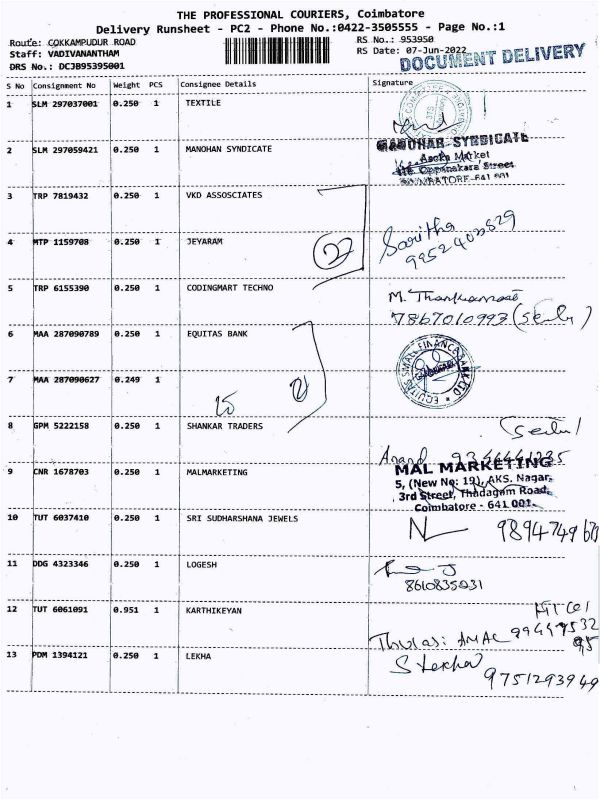 THE PROFESSIONAL COURIERS, Coimbatore
Delivery Runsheet - PC2 - Phone No.:0422-3505555 - Page No.:1
Route: COKKAMPUDUR ROAD
RS No.: 953950
Staff: VADIVANANTHAM
RS Date: 07-Jun-2022
DOCUMENT DELIVERY
DRS No.: DCJB95395001
S No Consignment No Weight PCS Consignee Details Signature
1 SLM 297037001 0.250 1 TEXTILE
2 SLM 297059421 0.250 1 MANOHAN SYNDICATE
MANOHAR SYNDICATE
Asoka Market
Oppanakara Street
COIMBATORE-641 001
3 TRP 7819432 0.250 1 VKD ASSOSCIATES
4 MTP 1159708 0.250 1 JEYARAM
27
Saritha
5 TRP 6155390 0.250 1 CODINGMART TECHNO
M.
7867010993
6 MAA 287090789 0.250 1 EQUITAS BANK
EQUITAS SMALL FINANCE BANK LTD
7 MAA 287090627 0.249 1
8 GPM 5222158 0.250 1 SHANKAR TRADERS
Anand
9 CNR 1678703 0.250 1 MALMARKETING
MAL MARKETING
5, (New No: 19), AKS. Nagar,
3rd Street, Thadagam Road,
Coimbatore - 641 001.
10 TUT 6037410 0.250 1 SRI SUDHARSHANA JEWELS
11 DDG 4323346 0.250 1 LOGESH
8610835031
12 TUT 6061091 0.951 1 KARTHIKEYAN
Thulasi
13 PDM 1394121 0.250 1 LEKHA
9751293949